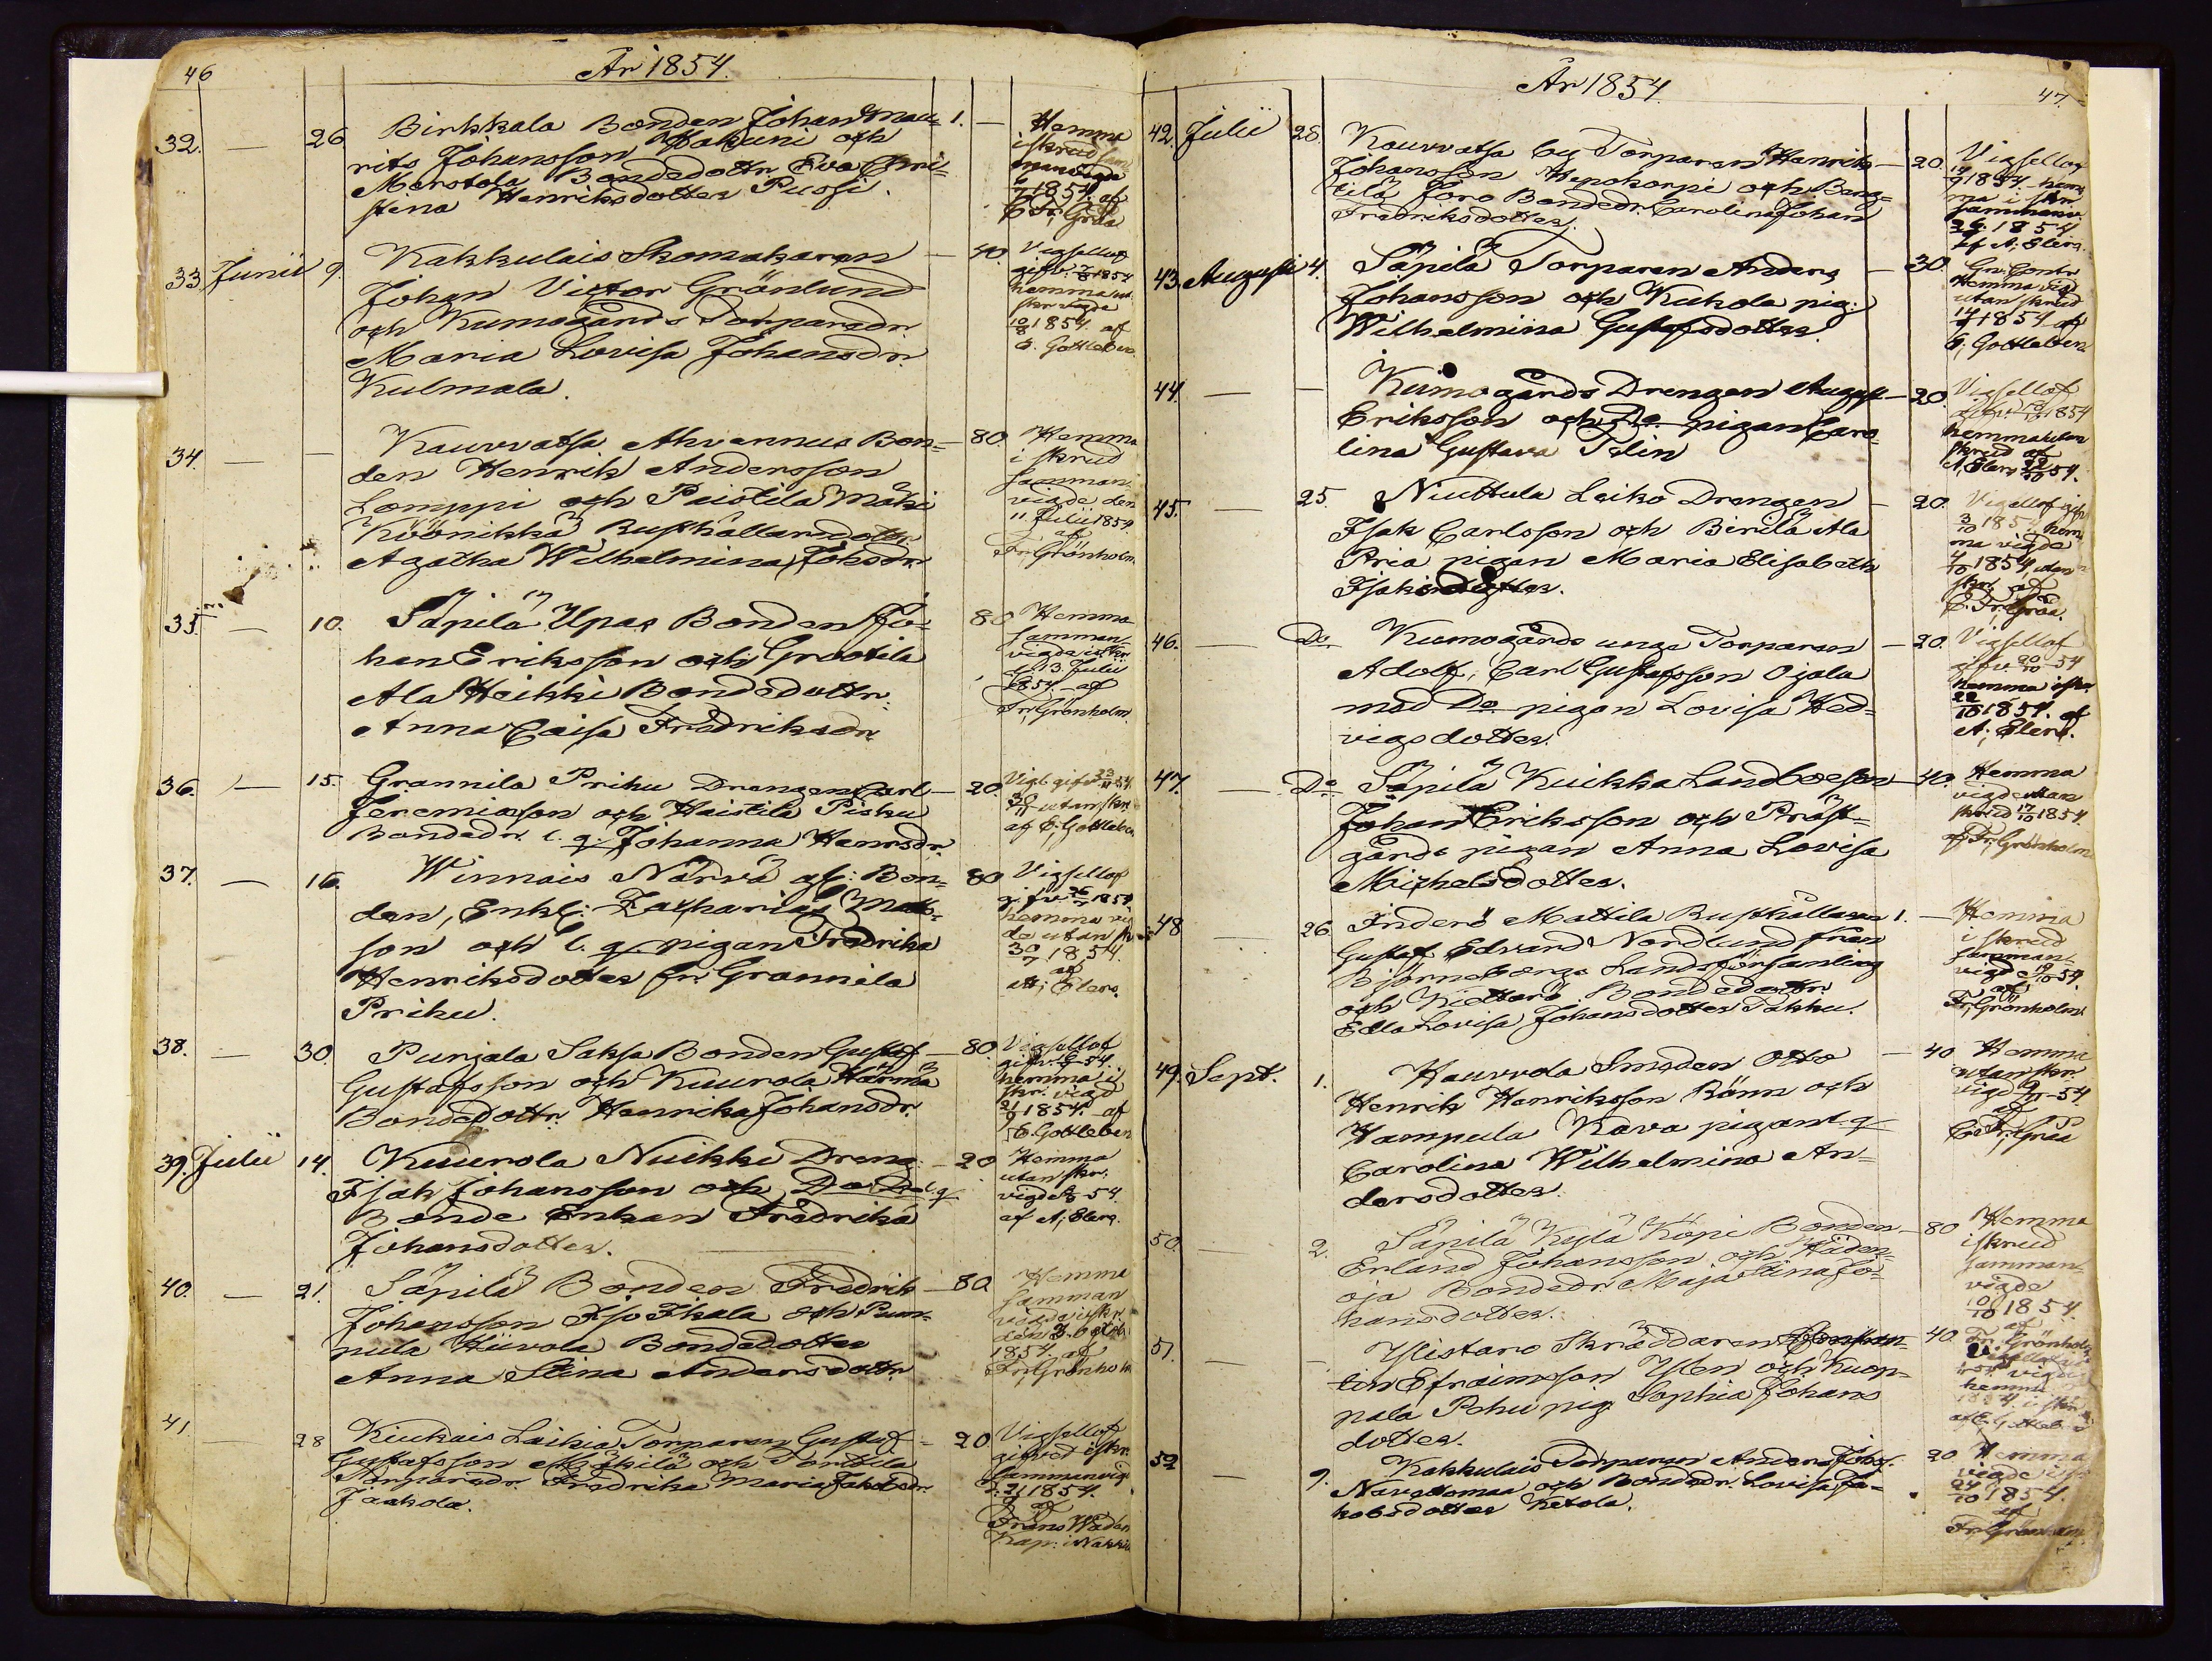 46
År 1854.
32. — 26 Birkkala Bonden Johan Mau= 1. —
rits Johansson Hakuni och
Merstola Bondedottr Eva Chri=
stena Henriksdotter Pussi.
Hemma
i skrud
1854. af
C. Fr. Gråå
33. Junii 9. Kakkulais Skomakaren — 40.
Johan Victor Grönlund
och Kumogårds Torparedr.
Maria Lovisa Johansdr.
Kulmala.
Vigsellof
gifv. 1854
hemma ut.
skr. vigde
10/8 1854 af
G. Gottleben
34. — — Kauvvatsa Ahvennus Bon= 80.
den Henrik Andersson
Lamppi och Paistila Mäki
Köönikkä Rusthållaredottr.
Agatha Wilhelmina Johsdr.
Hemma
i skrud
samman-
vigde den
11 Julii 1854.
af
Fr. Grönholm
35. — 10. Säpilä Upas Bonden Jo= 80
han Eriksson och Grootila
Ala Heikki Bondedottr.
Anna Caisa Fredriksdr.
Hemma
samman-
vigde i skr.
d. 13 Julii
1854. af
Fr. Grönholm.
36. — 15. Grannila Prihu Drengen Carl — 20.
Jeremiasson och Haistila Pisku
Bondedr. l. q. Johanna Henrsdr.
Vigl. gifv.
utan skr.
af G. Gottleben
37. — 16. Winnais Närvä afsk. Bon= 80
den, Enkl. Zacharias Matts=
son och l. q. pigan Fredrika
Henriksdotter fr. Grannila
Prihu.
Vigsellof
gifv. 1854.
hemma vig
de utan skr.
30/7 1854.
af
A. Elers.
38. — 30. Purjala Saksa Bonden Gustaf — 80.
Gustafsson och Kuurola Härmä
Bondedottr. Henrika Johansdr.
Vigsellof
gifv. 54.
hemma i
skr. vigd
21/9 1854 af
G. Gottleben
39. Julii 14. Kuurola Nuikki Dreng. — 20
Isak Johansson och Do Do l. q.
Bonde Enkan Fredrika
Johansdotter.
Hemma
utan skr.
vigde 54.
af A. Elers.
40. — 21. Säpilä Bonden Fredrik — 80.
Johansson Iso Ikala och Pum=
pula Hiivola Bondedotter
Anna Stina Andersdottr
Hemma
samman
vigde i skr.
den
1854. af
Fr. Grönholm
41. 28 Kiukais Laikia Torparen Gustaf — 20
Gustafsson Mäkilä och Torttila
Torparedr. Fredrika Maria Jakobsdr.
Jaakola.
Vigsellof
gifvet i skr.
sammanvig
1854.
af
Frans Wadén
Kap. i Nakkila
År 1854.
47.
42. Julii 28. Kauvvatsa by Torparen Henrik — 20.
Johansson Hepokorpi och Beng=
tilä Joro Bondedr. Carolina Johan
Fredriksdotter.
Vigsellof
1854. hem
ma i skr.
samman v.
1854
af A. Elers.
43. Augusti 4. Säpilä Torparen Anders — 30.
Johansson och Kukola pig.
Wilhelmina Gustafsdotter.
Hemma vigd
utan skrud
14/9 1854 af
G. Gottleben
44. — — Kumogårds Drengen August — 20.
Eriksson och Do pigan Caro
lina Gustava Tolin
Vigsellof
gifv. 1854
hemma utan
skrud af
A. Elers 54.
45. — 25. Niuttula Leiko Drengen — 20.
Isak Carlsson och Berila Ala
Pria pigan Maria Elisabeth
Isaksdotter.
Vigsellof gifv
3/10 1854 hem
ma vigde
4/10 1854 utan
skr. af
C. Fr. Gråå.
46. — Do Kumogårds unge Torparen — 20.
Adolf, Carl Gustafsson Ojala
med Do pigan Lovisa Hed=
vigsdotter.
Vigsellof
gifv 20/10 54
hemma i skr.
22/10 1854. af
A. Elers.
47. — Do Säpilä Kuikka Landboeson — 40.
Johan Eriksson och Präst=
gårds pigan Anna Lovisa
Michelsdotter.
Hemma
vigde utan
skrud 17/10 1854.
af Fr. Grönholm.
48 — 26 Inderö Mattila Rusthållaren 1. —
Gustaf Edvard Nordlund från
Björneborgs Landsförsamling
och Kiettarö Bondedottr.
Edla Lovisa Johansdotter Takku.
Hemma
i skrud
samman-
vigde 19/10 54.
af
Fr. Grönholm
49. Sept. 1. Hauvvola Smeden Otto — 40
Henrik Henriksson Rönn och
Hampula Kava pigan l. q.
Carolina Wilhelmina An=
dersdotter.
Hemma
utan skr.
vigd 54
af
C. Fr. Gråå
50. — 2. Säpilä Kylä Köpi Bonden — 80
Erland Johansson och Häden=
oja Bondedr. Maja Stina Jo=
hansdotter.
Hemma
i skrud
samman-
vigde
10/10 1854.
af
Fr. Grönholm
51. — — Ylistaro Skräddaren Constan= 40.
tin Efraimsson Ylén och Kuop=
pala Pohu pig. Sophia Johans
dotter.
vigde
hemma
1854. i skr.
af G. Gottleben
52 — 9. Kakkulais Torparen Anders Johs. 20
Navettomaa och Bondedr. Lovisa Ja=
kobsdotter Ketola.
Hemma
vigde i skr
24/10 1854.
af
Fr. Grönholm